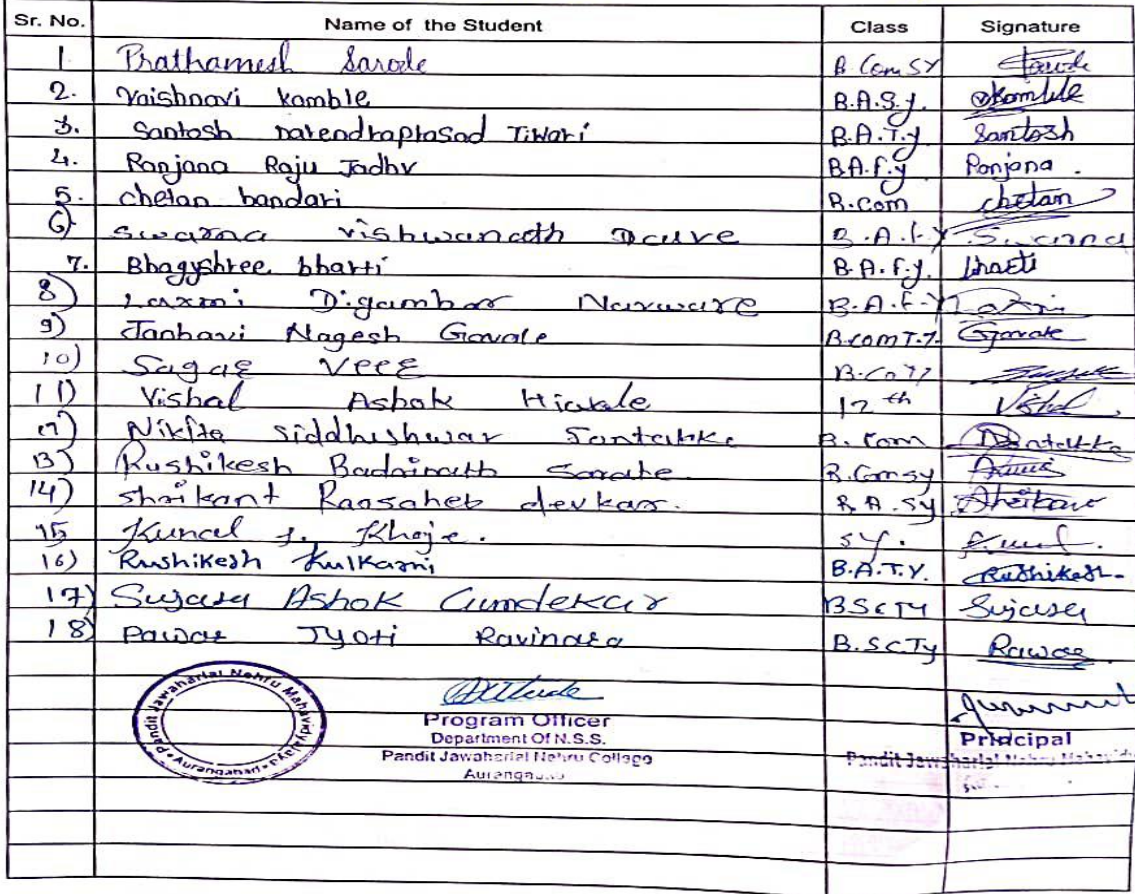 Sr. No. Name of the Student Class Signature
1. Prathamesh Sarode B.Com SY Sarode
2. Vaishnavi kamble B.A.S.y. Kamble
3. Santosh narendraprasad Tiwari B.A.T.y Santosh
4. Ranjana Raju Jadhv B.A.f.y Ranjana.
5. chetan bandari B.com chetan
6) swarna vishwanath Dauve B.A.F.Y Swarna
7. Bhagyshree bharti B.A.f.y. bharti
8) Laxmi Digambar Narware B.A.F.Y Laxmi
9) Janhavi Nagesh Gavale B.com T.y. Gavale
10) Sagar Veer
11) Vishal Ashok Hiwale 12th Vishal
Nikita siddheshwar B. Com
13) Rushikesh Badrinath Sarate B.Com sy
14) shrikant Raosaheb devkar. B.A.Sy Shrikant
15 Kunal s. Khaje. sy.
16) Rushikesh Kulkarni B.A.T.Y. Rushikesh
17) Ashok BScTY
18) Pawar Jyoti Ravindra B.ScTy Pawar
Pandit Jawaharlal Nehru Mahavidyalaya
Aurangabad
Program Officer
Department Of N.S.S.
Pandit Jawaharlal Nehru College
Aurangabad
Principal
Pandit Jawaharlal Nehru